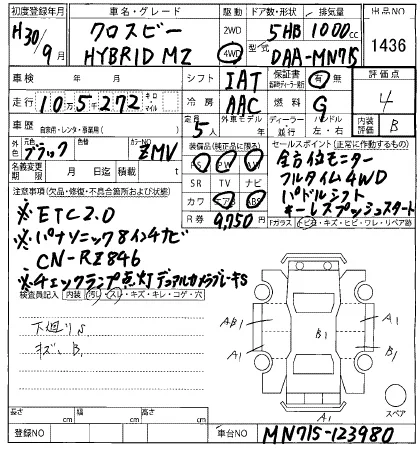 初度登録年月 車名・グレード 駆動 ドア数・形状 排気量 出品NO
H30/9月 クロスビー HYBRID MZ 2WD 4WD 5HB 1000cc 1436
型式 DAA-MN71S
車検 年 月 シフト IAT 保証書 有・無 評価点 4
走行 10万5千272 キロ・マイル 冷房 AAC 燃料 G
車歴 自家用・レンタ・事業用( ) 定員 5人 外車モデル 年 ディーラー 並行 ハンドル 左・右 内装評価 B
外色 元色 ブラック カラーNO ZMV 装備品(純正品に限る) セールスポイント(正常に作動するもの)
名義変更期限 月 日迄 積載量 t PS PW AW 全方位モニター
SR TV ナビ フルタイム4WD
注意事項(欠品・修復・不具合箇所および状態) カワ エアB ABS パドルシフト
R券 9,750 キーレスプッシュスタート
※ETC2.0
※パナソニック8インチナビ
CN-RE846
※チェックランプ点灯デュアルカメラブレーキS
Fガラス トビ石・キズ・ヒビ・ワレ・リペア跡
検査員記入 内装 汚レ・スレ・キズ・キレ・コゲ・穴
下廻りS
キズ、B1
AB1 A1 B1 A1 B1 A1
スペア
長さ cm 幅 cm 高さ cm
登録NO 車台NO MN71S-123980